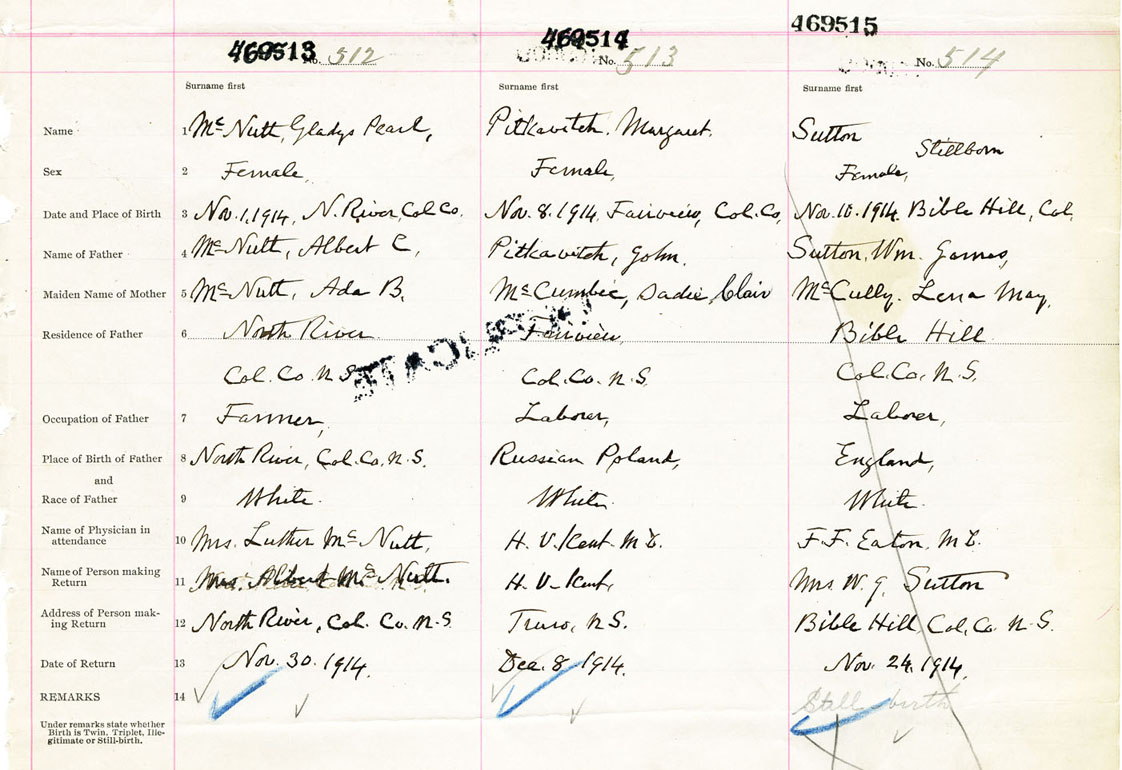 469513 469514 469515
No. 512 No. 513 No. 514
Surname first Surname first Surname first
Name 1 McNutt, Gladys Pearl, Pitkavitch, Margaret. Sutton Stillborn
Sex 2 Female, Female, Female,
Date and Place of Birth 3 Nov. 1. 1914, N. River, Col. Co. Nov. 8. 1914, Fairview, Col. Co, Nov. 10. 1914. Bible Hill, Col.
Name of Father 4 McNutt, Albert C, Pitkavitch, John. Sutton, Wm. James,
Maiden Name of Mother 5 McNutt, Ada B. McCumbie, Sadie Clair McCully. Lena May,
Residence of Father 6 North River. Fairview, Bible Hill.
Col. Co. N.S. Col. Co. N.S. Col. Co, N.S.
DUPLICATE
Occupation of Father 7 Farmer, Laborer, Laborer,
Place of Birth of Father 8 North River, Col. Co, N.S. Russian Poland, England,
and
Race of Father 9 White. White. White.
Name of Physician in attendance 10 Mrs. Luther McNutt, H. V. Kent. M.D. F. F. Eaton, M.D.
Name of Person making Return 11 Mrs. Albert McNutt. H. V. Kent, Mrs W. J. Sutton
Address of Person mak-ing Return 12 North River, Col. Co. N.S. Truro, N.S. Bible Hill, Col. Co. N.S.
Date of Return 13 Nov. 30. 1914. Dec. 8. 1914. Nov. 24. 1914,
REMARKS 14 Still birth
Under remarks state whether
Birth is Twin, Triplet, Ille-
gitimate or Still-birth.